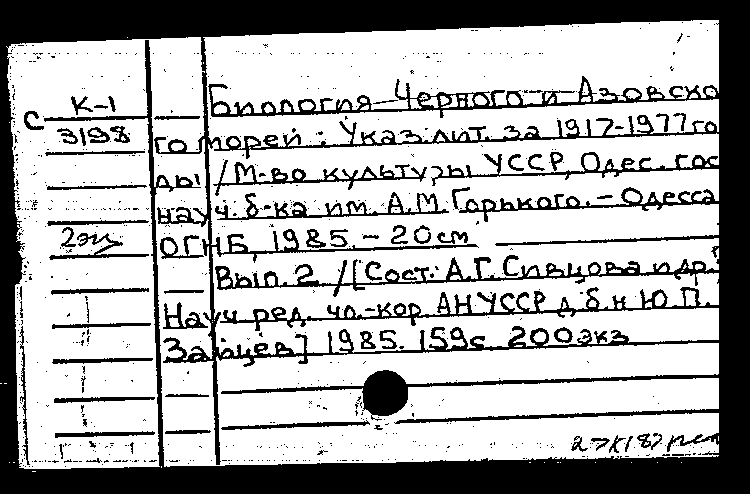 К-1 Биология Черного и Азовско
С 3198 го морей: Указ. лит. за 1917-1977го
ды /М-во культуры УССР, Одес. гос
науч. б-ка им. А.М. Горького. – Одесса
2эк ОГНБ, 1985. – 20 см
Вып. 2 /[Сост: А.Г. Сивцова и др.
Науч ред. чл.-кор. АН УССР д.б.н Ю.П.
Зайцев] 1985. 159с 200экз